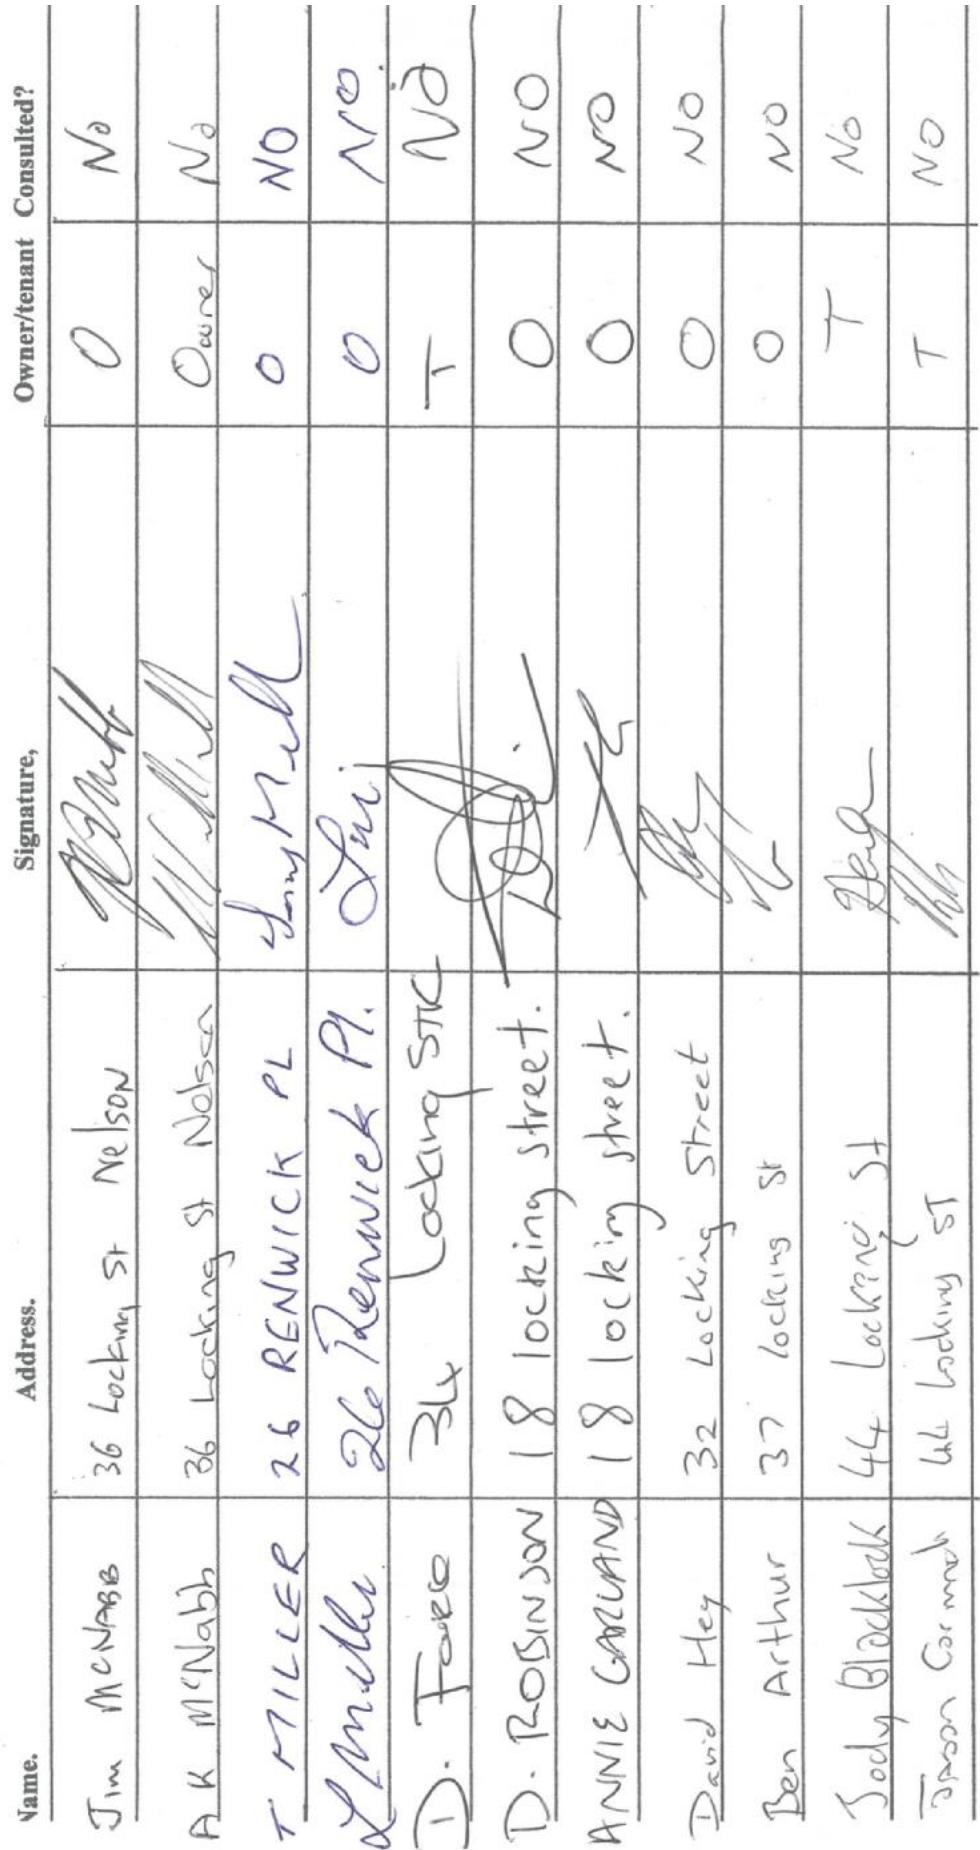 Name. Address. Signature, Owner/tenant Consulted?
Jim McNABB 36 Locking St Nelson O No
A K McNabb 36 Locking St Nelson Owner No
T MILLER 26 RENWICK PL O NO
L Miller 26 Renwick Pl. O No.
D. 34 Locking STR T No
D. ROBINSON 18 locking street. O NO
ANNIE GARLAND 18 locking street. O NO
David Hey 32 Locking Street O NO
Ben Arthur 37 locking St O NO
Jody Blacklock 44 Locking St T No
Jason 44 Locking ST T NO